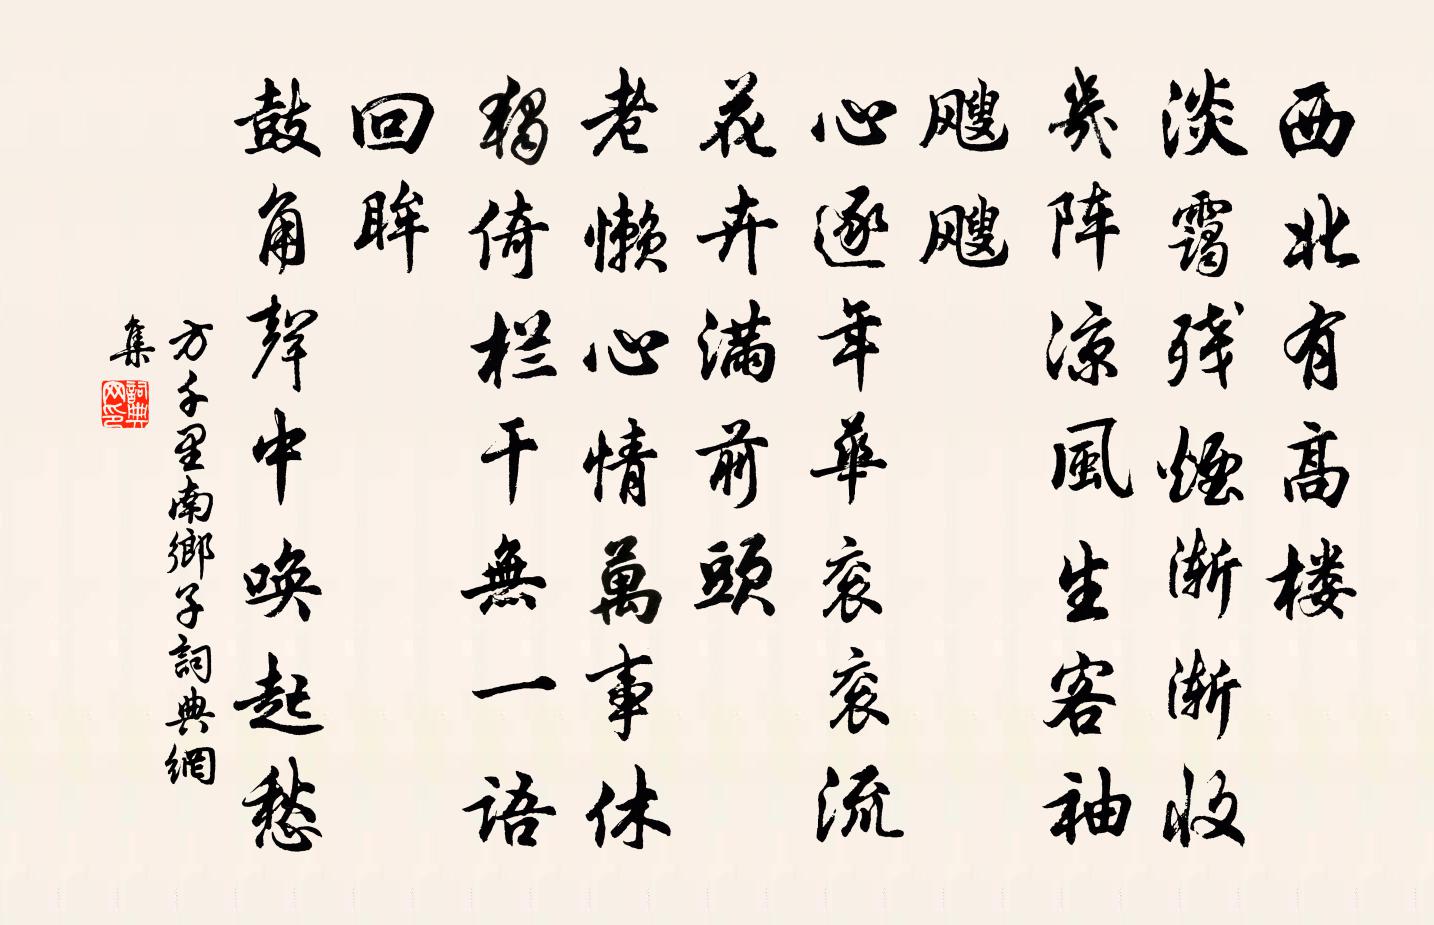 西北有高楼
淡靄残煙渐渐收
幾阵凉風生客袖
飕飕
心逐年華衮衮流
花卉满前頭
老懒心情萬事休
獨倚栏干無一语
回眸
鼓角聲中唤起愁
方千里南鄉子詞典網
集
詞典網印